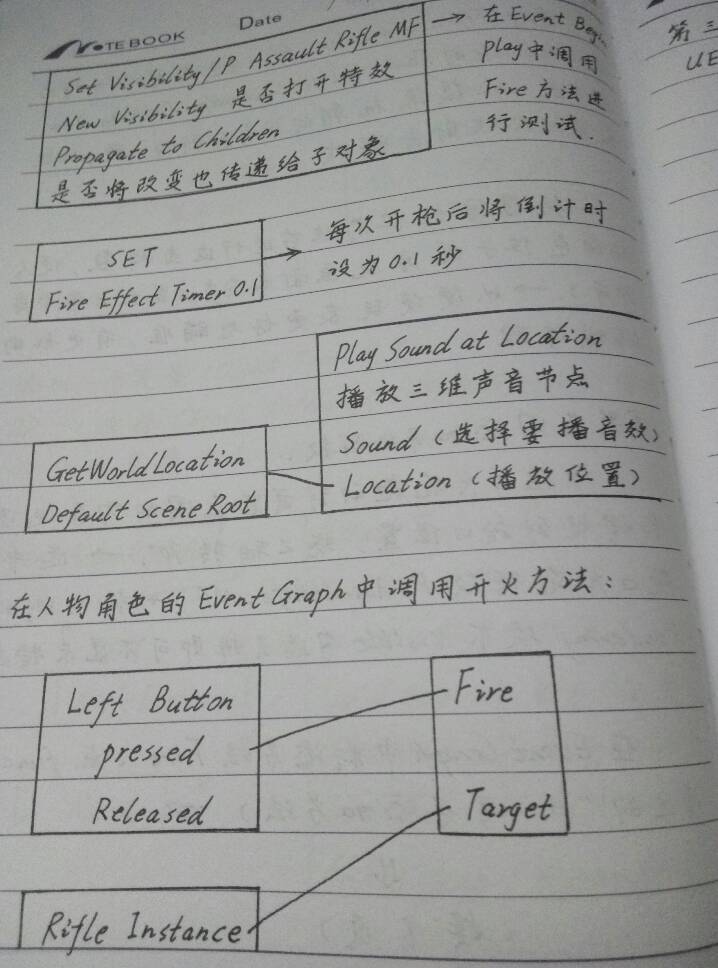 NOTEBOOK
Date
Set Visibility/P Assault Rifle MF
New Visibility 是否打开特效
Propagate to Children
是否将改变也传递给子对象
在 Event Begin
play中调用
Fire 方法进
行测试.
SET
Fire Effect Timer 0.1
每次开枪后将倒计时
设为 0.1 秒
Play Sound at Location
播放三维声音节点
Sound (选择要播音效)
Location (播放位置)
GetWorldLocation
Default Scene Root
在人物角色的 Event Graph 中调用开火方法:
Left Button
pressed
Released
Fire
Target
Rifle Instance
第三
UE